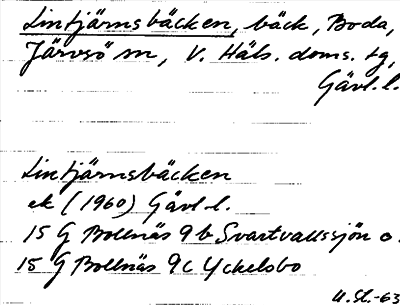 Lintjärnsbäcken, bäck, Boda,
Järvsö sn, V. Häls. doms. tg,
Gävl.l.
Lintjärnsbäcken
ek (1960) Gävl.l.
15 G Bollnäs 9b Svartvallssjön o.
15 G Bollnäs 9c Yckelsbo
U.St.-63